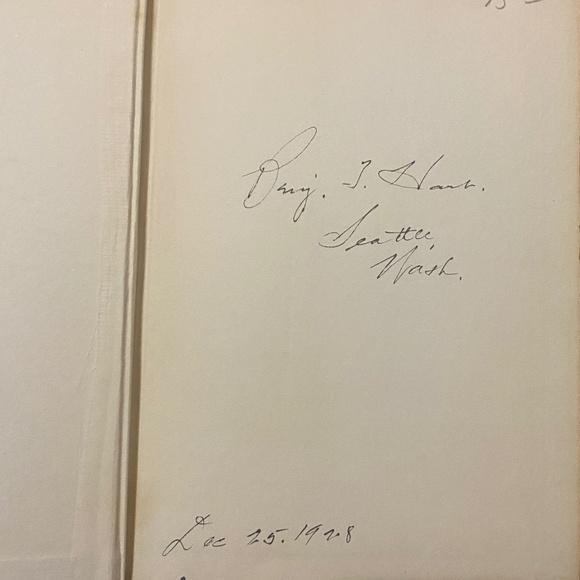 15 –
Benj. T. Hart.
Seattle,
Wash.
Dec 25. 1928